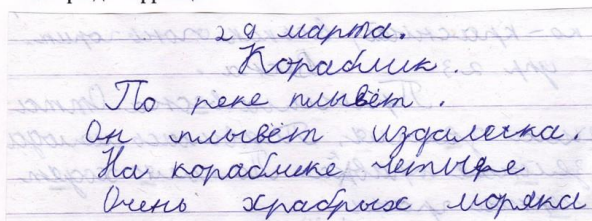 29 марта.
Кораблик.
По реке плывёт.
Он плывёт издалечка.
На кораблике четыре
Очень храбрых моряка